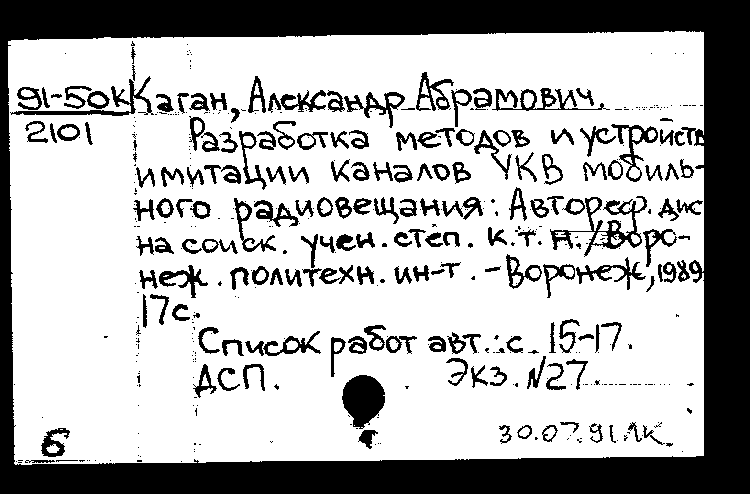 91-50к Каган, Александр Абрамович.
2101 Разработка методов и устройств
имитации каналов УКВ мобиль-
ного радиовещания: Автореф. дис
на соиск. учен. степ. к.т.н./Воро-
неж. политехн. ин-т. -Воронеж, 1989
17с.
Список работ авт.: с. 15-17.
ДСП. Экз. №27.
6 30.07.91 ЛК